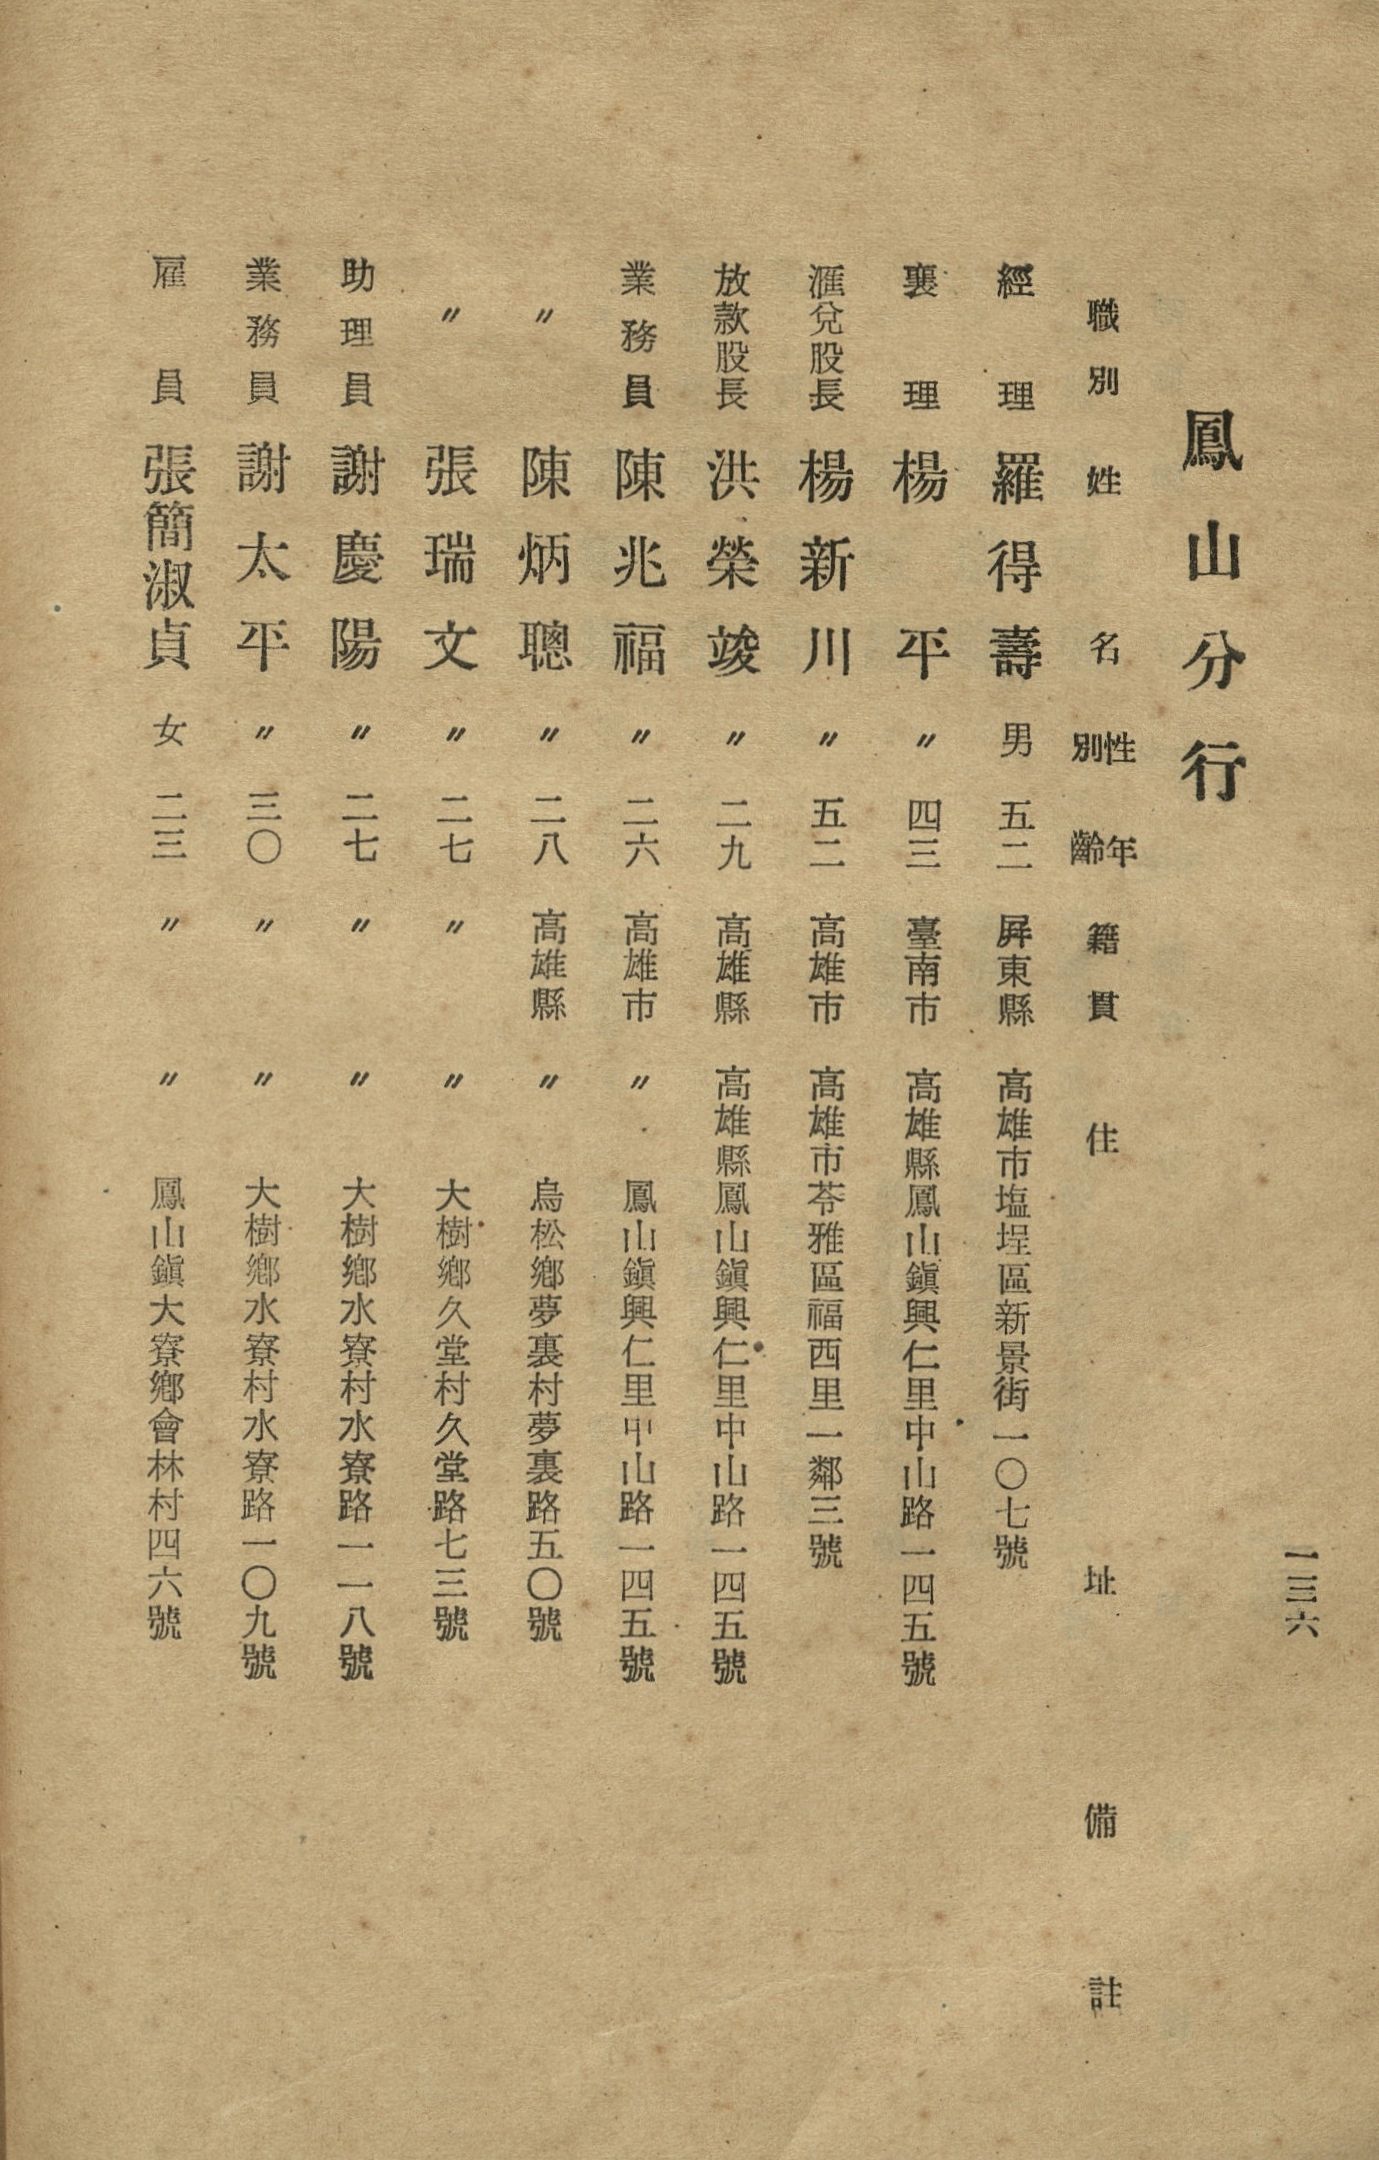 一三六
鳳山分行
職別 姓名 性別 年齡 籍貫 住址 備註
經理 羅得壽 男 五二 屏東縣 高雄市塩埕區新景街一〇七號
襄理 楊平 〃 四三 臺南市 高雄縣鳳山鎭興仁里中山路一四五號
滙兌股長 楊新川 〃 五二 高雄市 高雄市苓雅區福西里一鄰三號
放款股長 洪榮竣 〃 二九 高雄縣 高雄縣鳳山鎭興仁里中山路一四五號
業務員 陳兆福 〃 二六 高雄市 〃 鳳山鎭興仁里中山路一四五號
〃 陳炳聰 〃 二八 高雄縣 〃 鳥松鄉夢裏村夢裏路五〇號
〃 張瑞文 〃 二七 〃 〃 大樹鄉久堂村久堂路七三號
助理員 謝慶陽 〃 二七 〃 〃 大樹鄉水寮村水寮路一一八號
業務員 謝太平 〃 三〇 〃 〃 大樹鄉水寮村水寮路一〇九號
雇員 張簡淑貞 女 二三 〃 〃 鳳山鎭大寮鄉會林村四六號